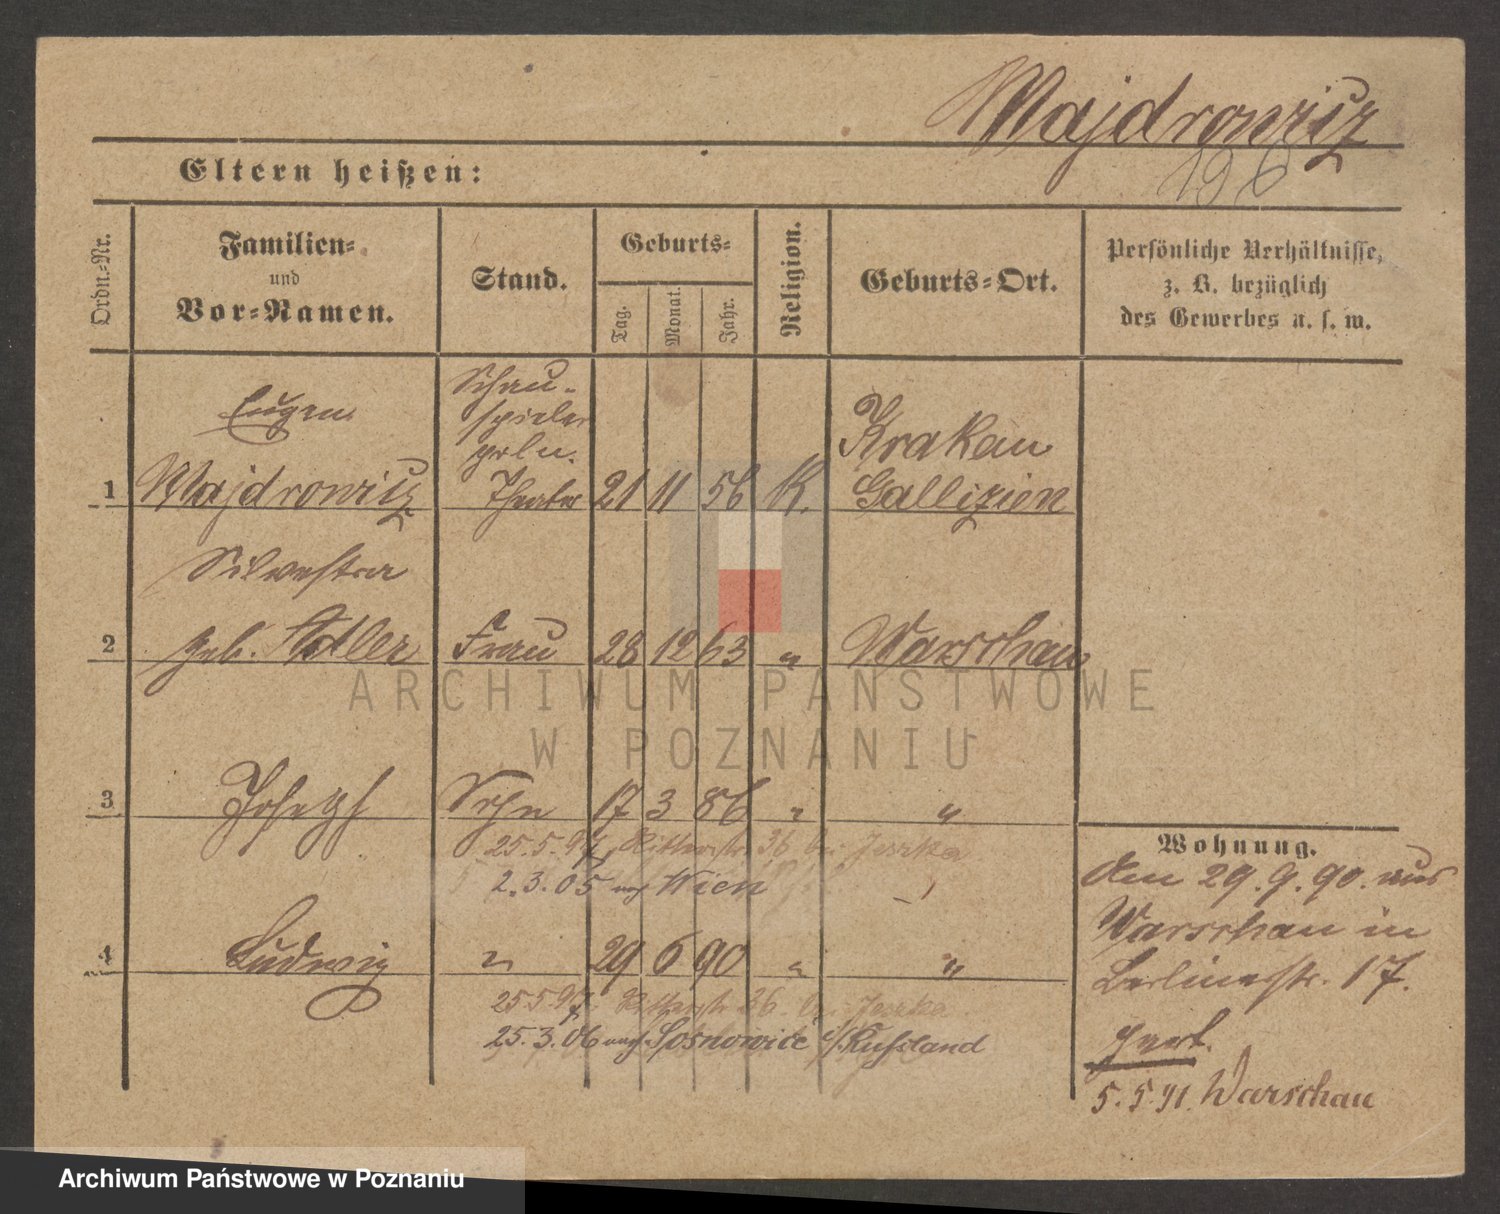 Majdrowicz
196
Eltern heißen:
Ordn.-Nr.
Familien-
und
Vor-Namen.
Stand.
Geburts-
Tag.
Monat.
Jahr.
Religion.
Geburts-Ort.
Persönliche Verhältnisse,
z. B. bezüglich
des Gewerbes u. s. w.
Eugen
Schau-
spieler
poln.
Krakau
1 Majdrowicz Theater 21 11 56 K. Gallizien
Silvestra
2 geb. Adler Frau 28 12 63 " Warschau
ARCHIWUM PAŃSTWOWE
W POZNANIU
3 Joseph Sohn 17 3 86 " "
25.5.97 Ritterstr. 36 bei Jeszka
2.3.05 nach Wien
4 Ludwig " 29 6 90 " "
25.5.97 Ritterstr. 36 bei Jeszka
25.3.06 nach Sosnowice i/Russland
Wohnung.
den 29.9.90. aus
Warschau in
Berlinerstr. 17.
5.5.91. Warschau
Archiwum Państwowe w Poznaniu